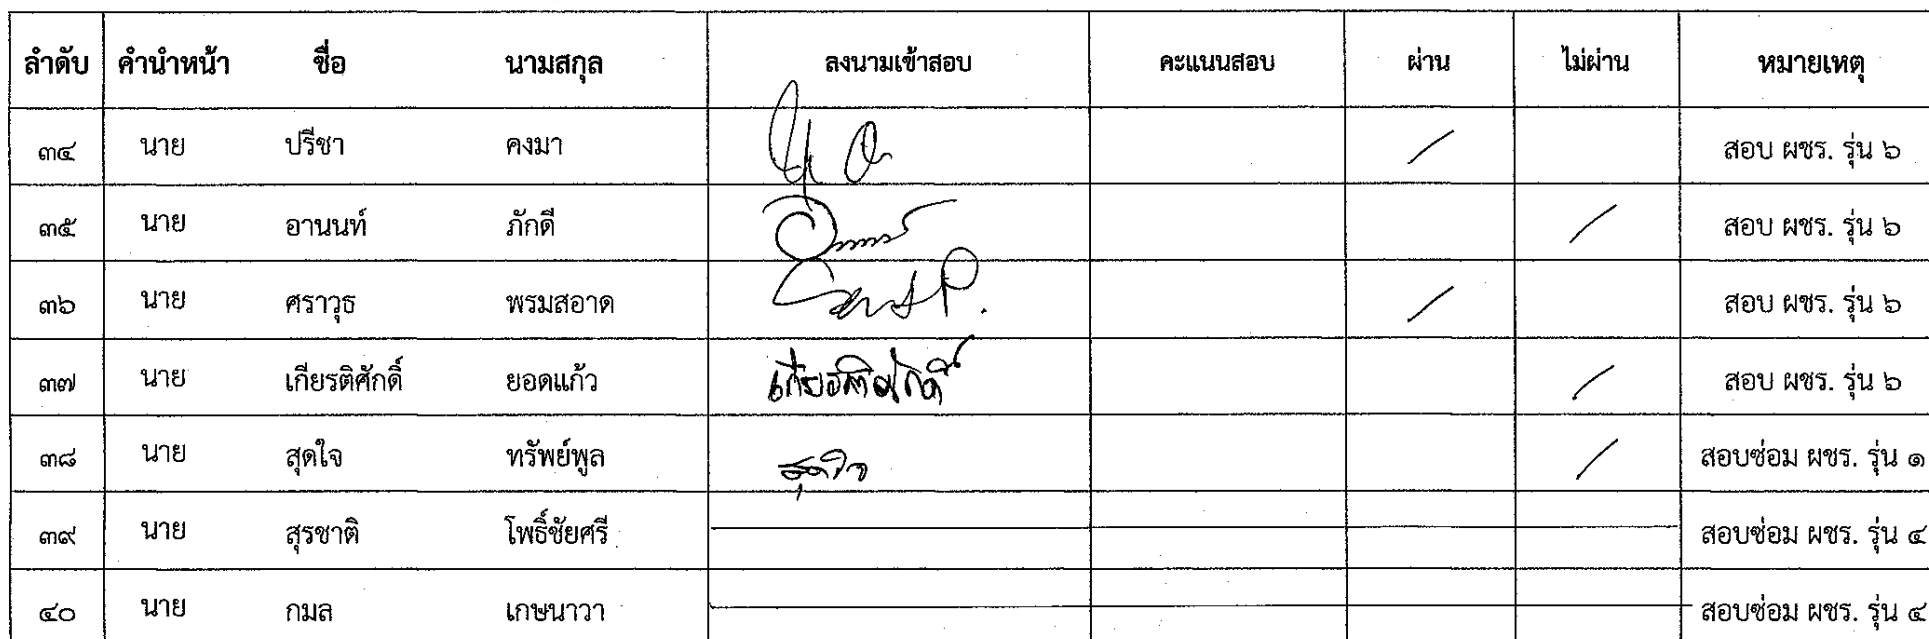 ลำดับ คำนำหน้า ชื่อ นามสกุล ลงนามเข้าสอบ คะแนนสอบ ผ่าน ไม่ผ่าน หมายเหตุ
๓๔ นาย ปรีชา คงมา / สอบ ผชร. รุ่น ๖
๓๕ นาย อานนท์ ภักดี / สอบ ผชร. รุ่น ๖
๓๖ นาย ศราวุธ พรมสอาด / สอบ ผชร. รุ่น ๖
๓๗ นาย เกียรติศักดิ์ ยอดแก้ว เกียรติศักดิ์ / สอบ ผชร. รุ่น ๖
๓๘ นาย สุดใจ ทรัพย์พูล สุดใจ / สอบซ่อม ผชร. รุ่น ๑
๓๙ นาย สุรชาติ โพธิ์ชัยศรี สอบซ่อม ผชร. รุ่น ๔
๔๐ นาย กมล เกษนาวา สอบซ่อม ผชร. รุ่น ๔